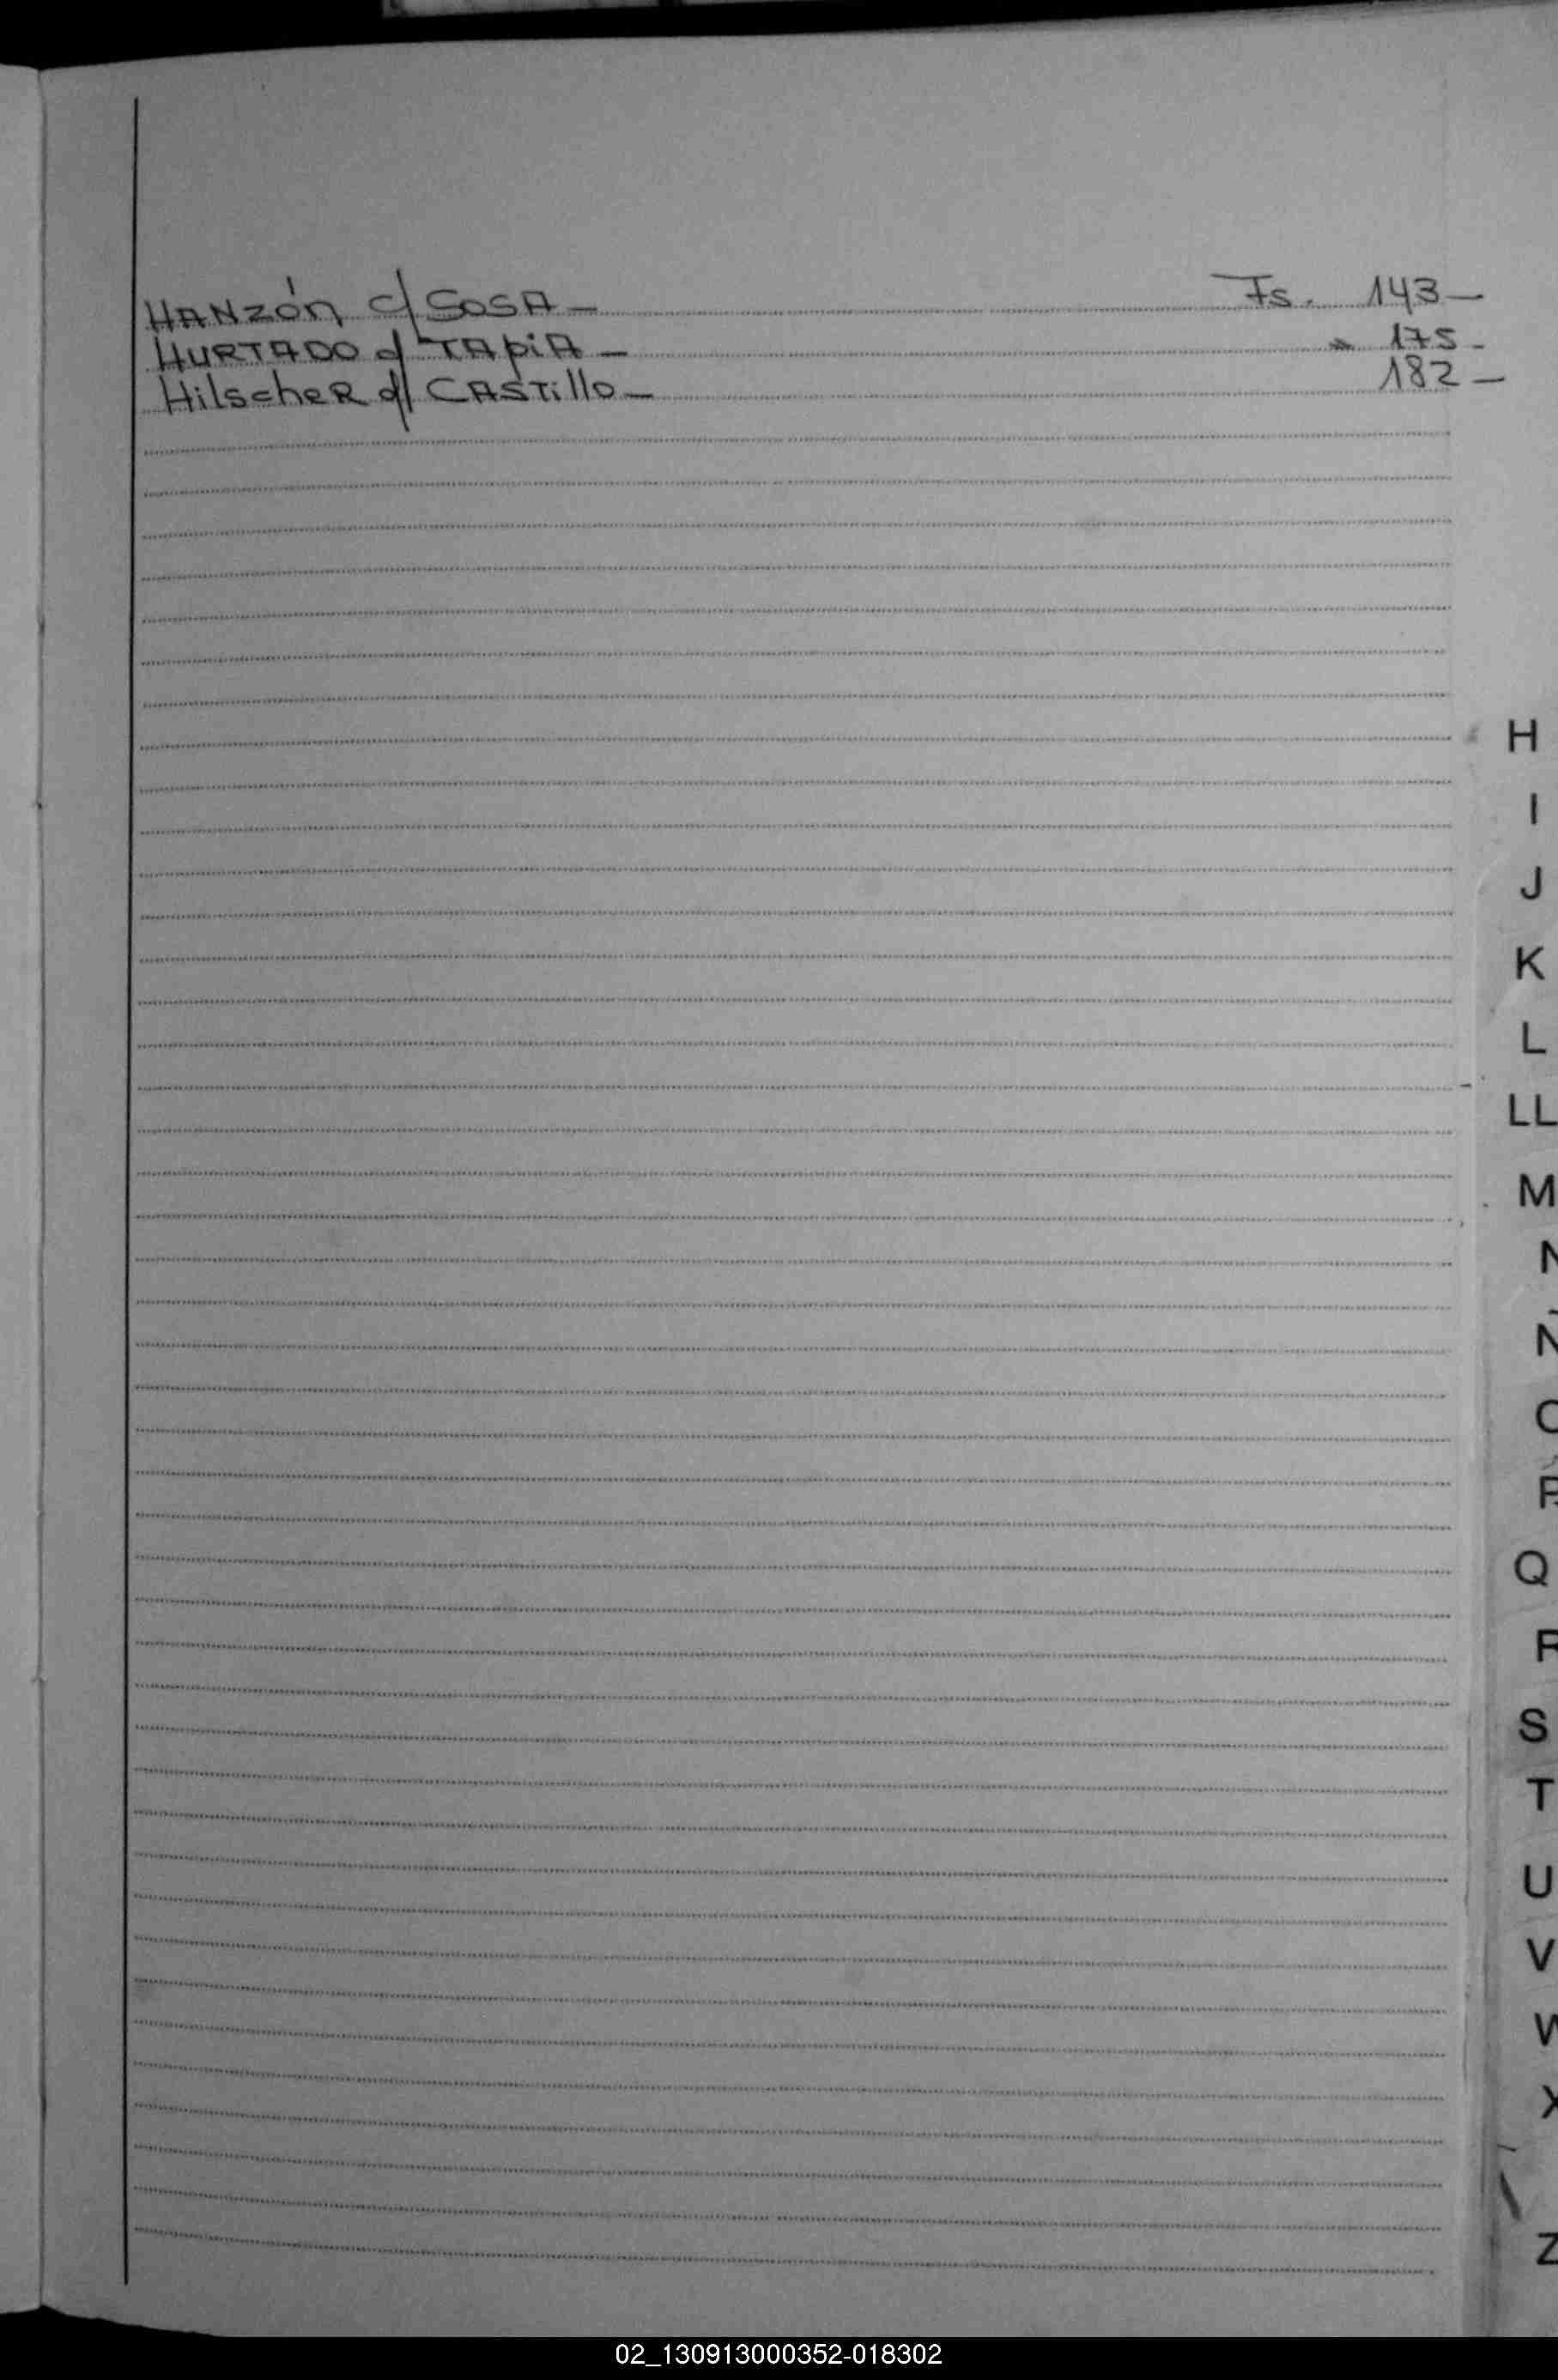 HANZÓN c/ SOSA — Fs. 143 —
HURTADO c/ TAPIA — " 175 -
HilscheR c/ CASTillo — 182 —
H
I
J
K
L
LL
M
N
Ñ
O
P
Q
R
S
T
U
V
W
X
Z
02_130913000352-018302